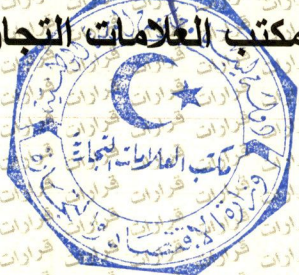 مكتب العلامات التجار
مكتب العلامات التجارية
وزارة الاقتصاد والتجارة
قرارات